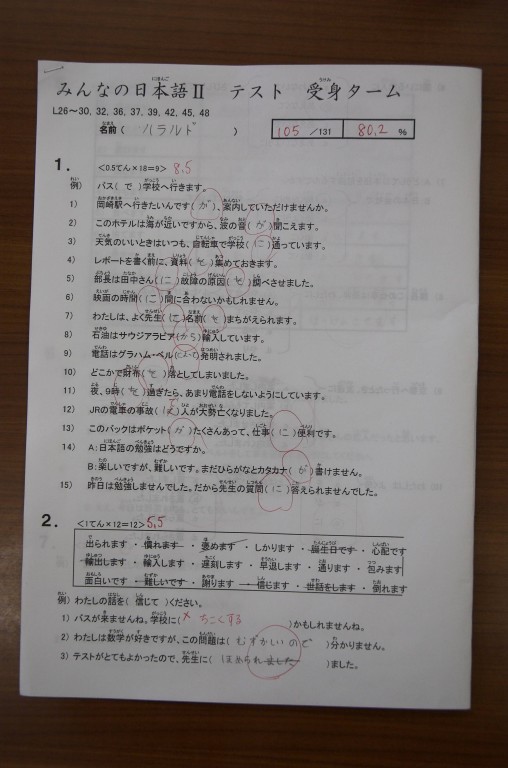 みんなの日本語Ⅱ テスト 受身ターム
L26～30, 32, 36, 37, 39, 42, 45, 48
名前( ハラルド ) 105 /131 80.2 %
1. <0.5てん×18=9> 8.5
例) バス( で )学校へ行きます。
1) 岡崎駅へ行きたいんです( が )、案内していただけませんか。
2) このホテルは海が近いですから、波の音( が )聞こえます。
3) 天気のいいときはいつも、自転車で学校( に )通っています。
4) レポートを書く前に、資料( を )集めておきます。
5) 部長は田中さん( に )故障の原因( を )調べさせました。
6) 映画の時間( に )間に合わないかもしれません。
7) わたしは、よく先生( に )名前( を )まちがえられます。
8) 石油はサウジアラビア( から )輸入しています。
9) 電話はグラハム・ベル( によって )発明されました。
10) どこかで財布( を )落としてしまいました。
11) 夜、9時( を )過ぎたら、あまり電話をしないようにしています。
12) JRの電車の事故( )人が大勢亡くなりました。
13) このバックはポケット( が )たくさんあって、仕事( に )便利です。
14) A:日本語の勉強はどうですか。
B:楽しいですが、難しいです。まだひらがなとカタカナ( が )書けません。
15) 昨日は勉強しませんでした。だから先生の質問( に )答えられませんでした。
2. <1てん×12=12> 5.5
出られます ・ 慣れます ・ 褒めます ・ しかります ・ 誕生日です ・ 心配です
輸出します ・ 輸入します ・ 遅刻します ・ 早退します ・ 通ります ・ 包みます
面白いです ・ 難しいです ・ 謝ります ・ 信じます ・ 世話をします ・ 倒れます
例) わたしの話を( 信じて )ください。
1) バスが来ませんね。学校に( ちこくする )かもしれませんね。
2) わたしは数学が好きですが、この問題は( むずかしいので )分かりません。
3) テストがとてもよかったので、先生に( ほめられました )ました。